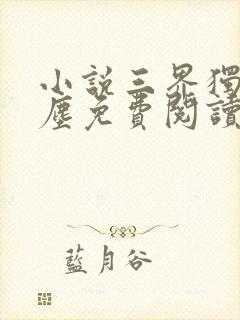 小說三界獨
塵免費閱讀
藍月谷